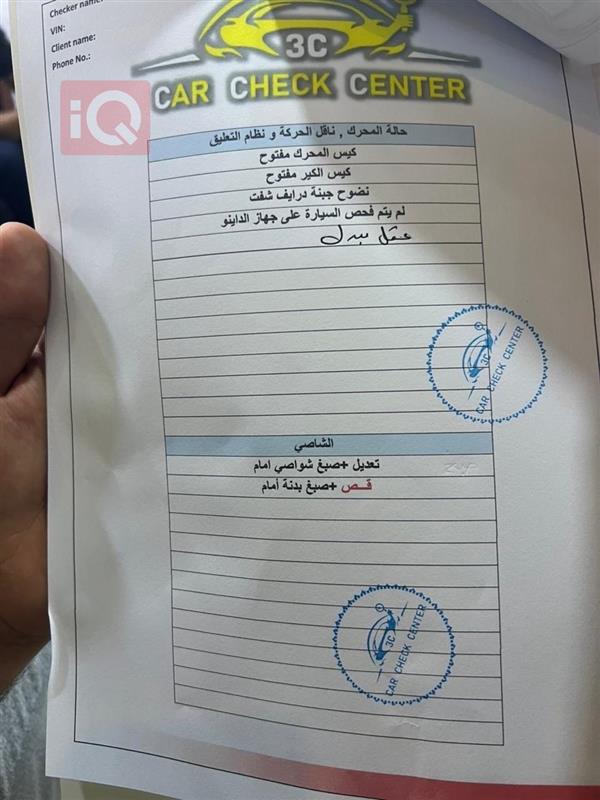 Checker name:
VIN:
Client name:
Phone No.:
3C
CAR CHECK CENTER
iQ
حالة المحرك , ناقل الحركة و نظام التعليق
كيس المحرك مفتوح
كيس الكير مفتوح
نضوح جبنة درايف شفت
لم يتم فحص السيارة على جهاز الداينو
3C
CAR CHECK CENTER
الشاصي
تعديل +صبغ شواصي امام
قــص +صبغ بدنة أمام
3C
CAR CHECK CENTER